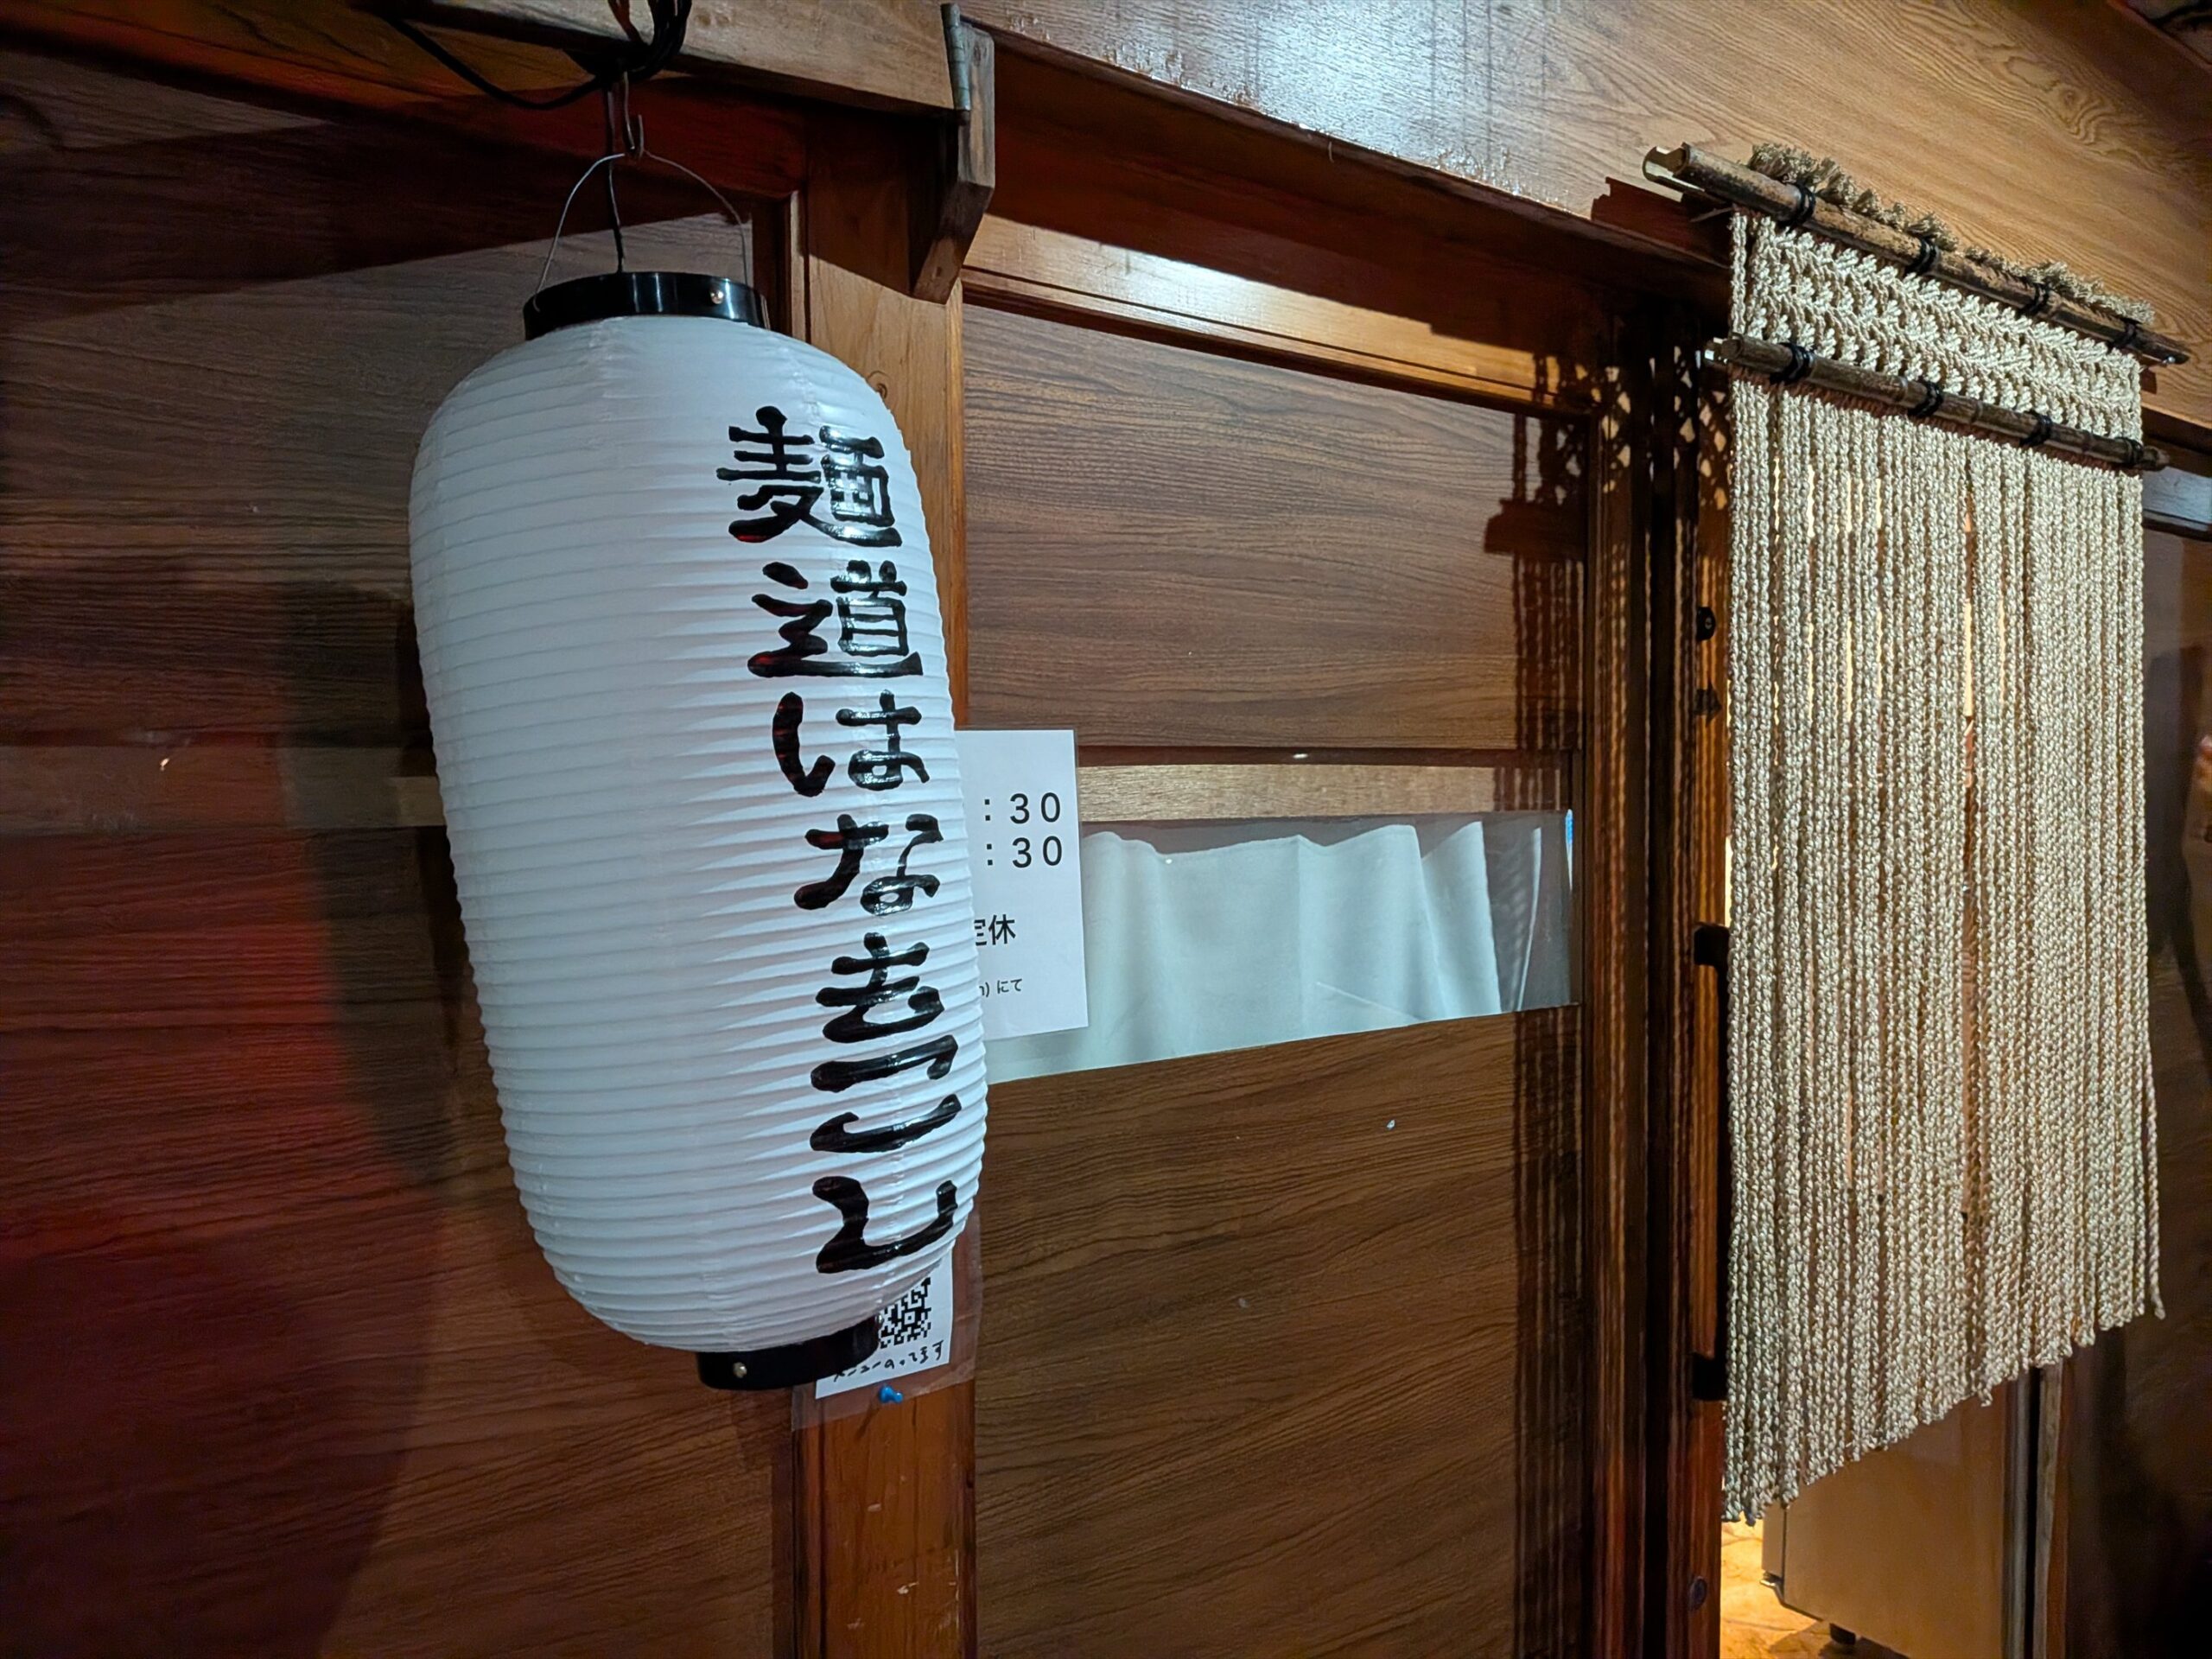 麺道はなもこし
:30
:30
定休
にて
メニューのってます